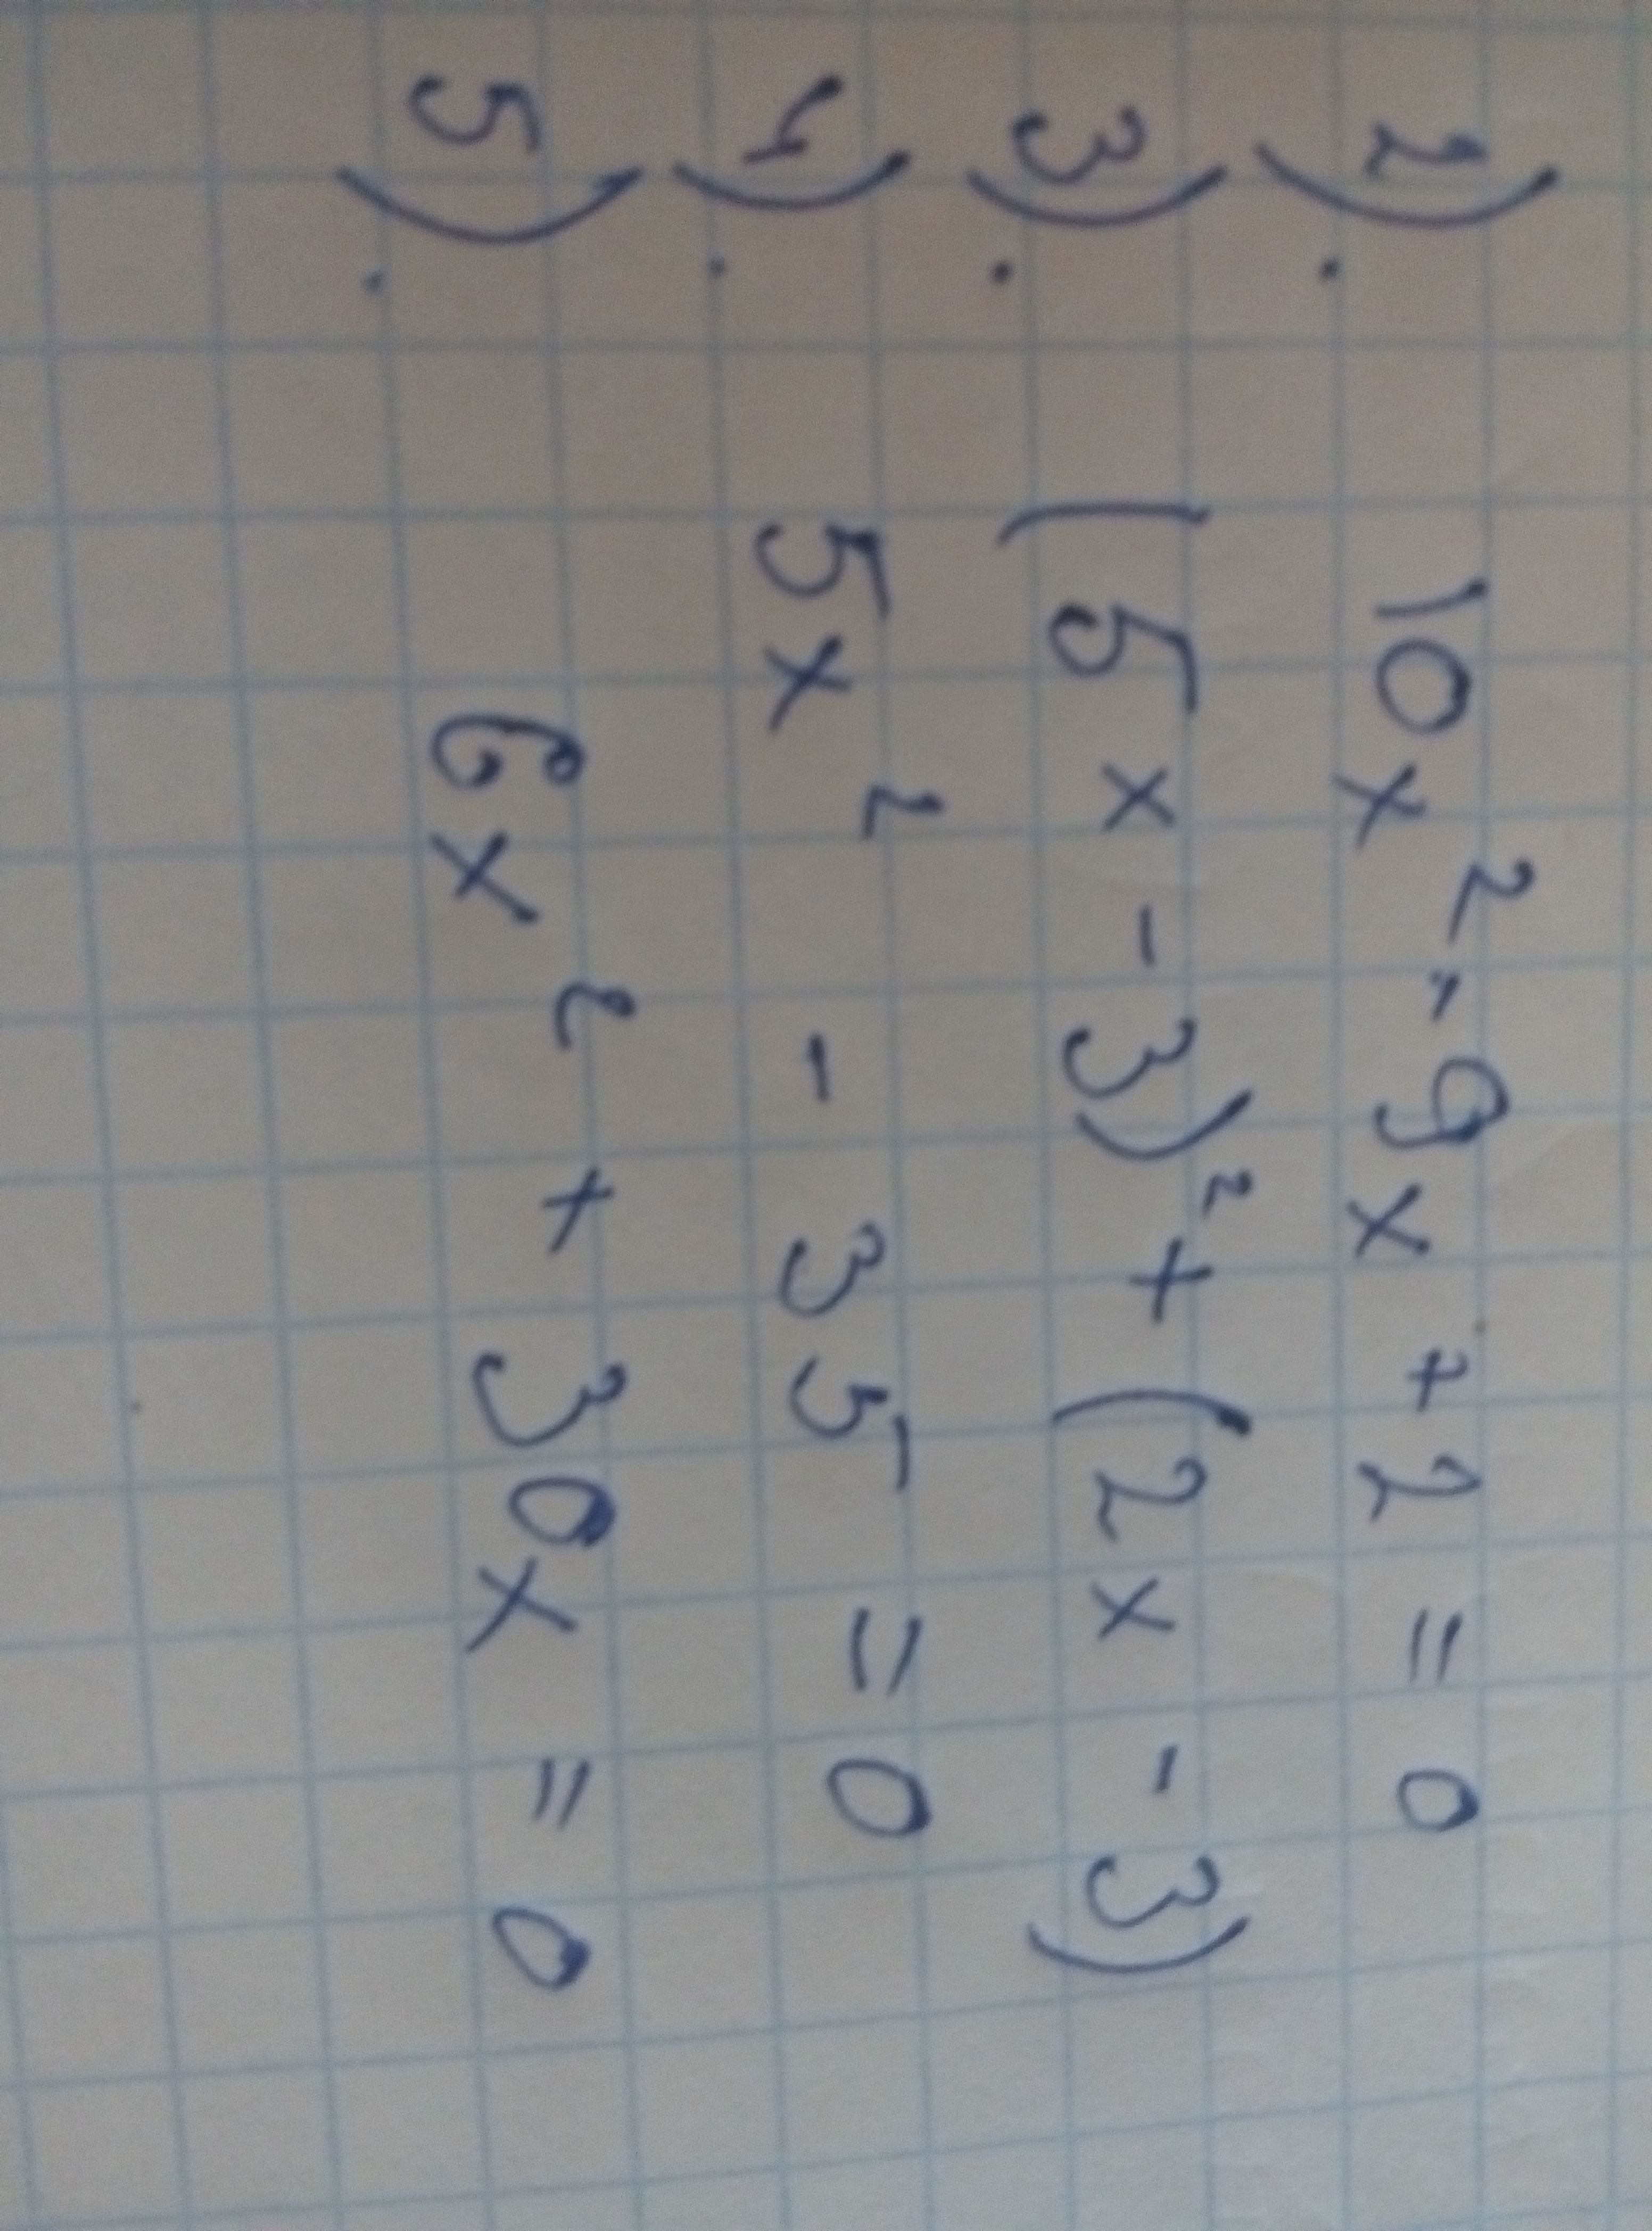 2). 10x² - 9x + 2 = 0
3). (5x - 3)² + (2x - 3)
4). 5x² - 35 = 0
5). 6x² + 30x = 0